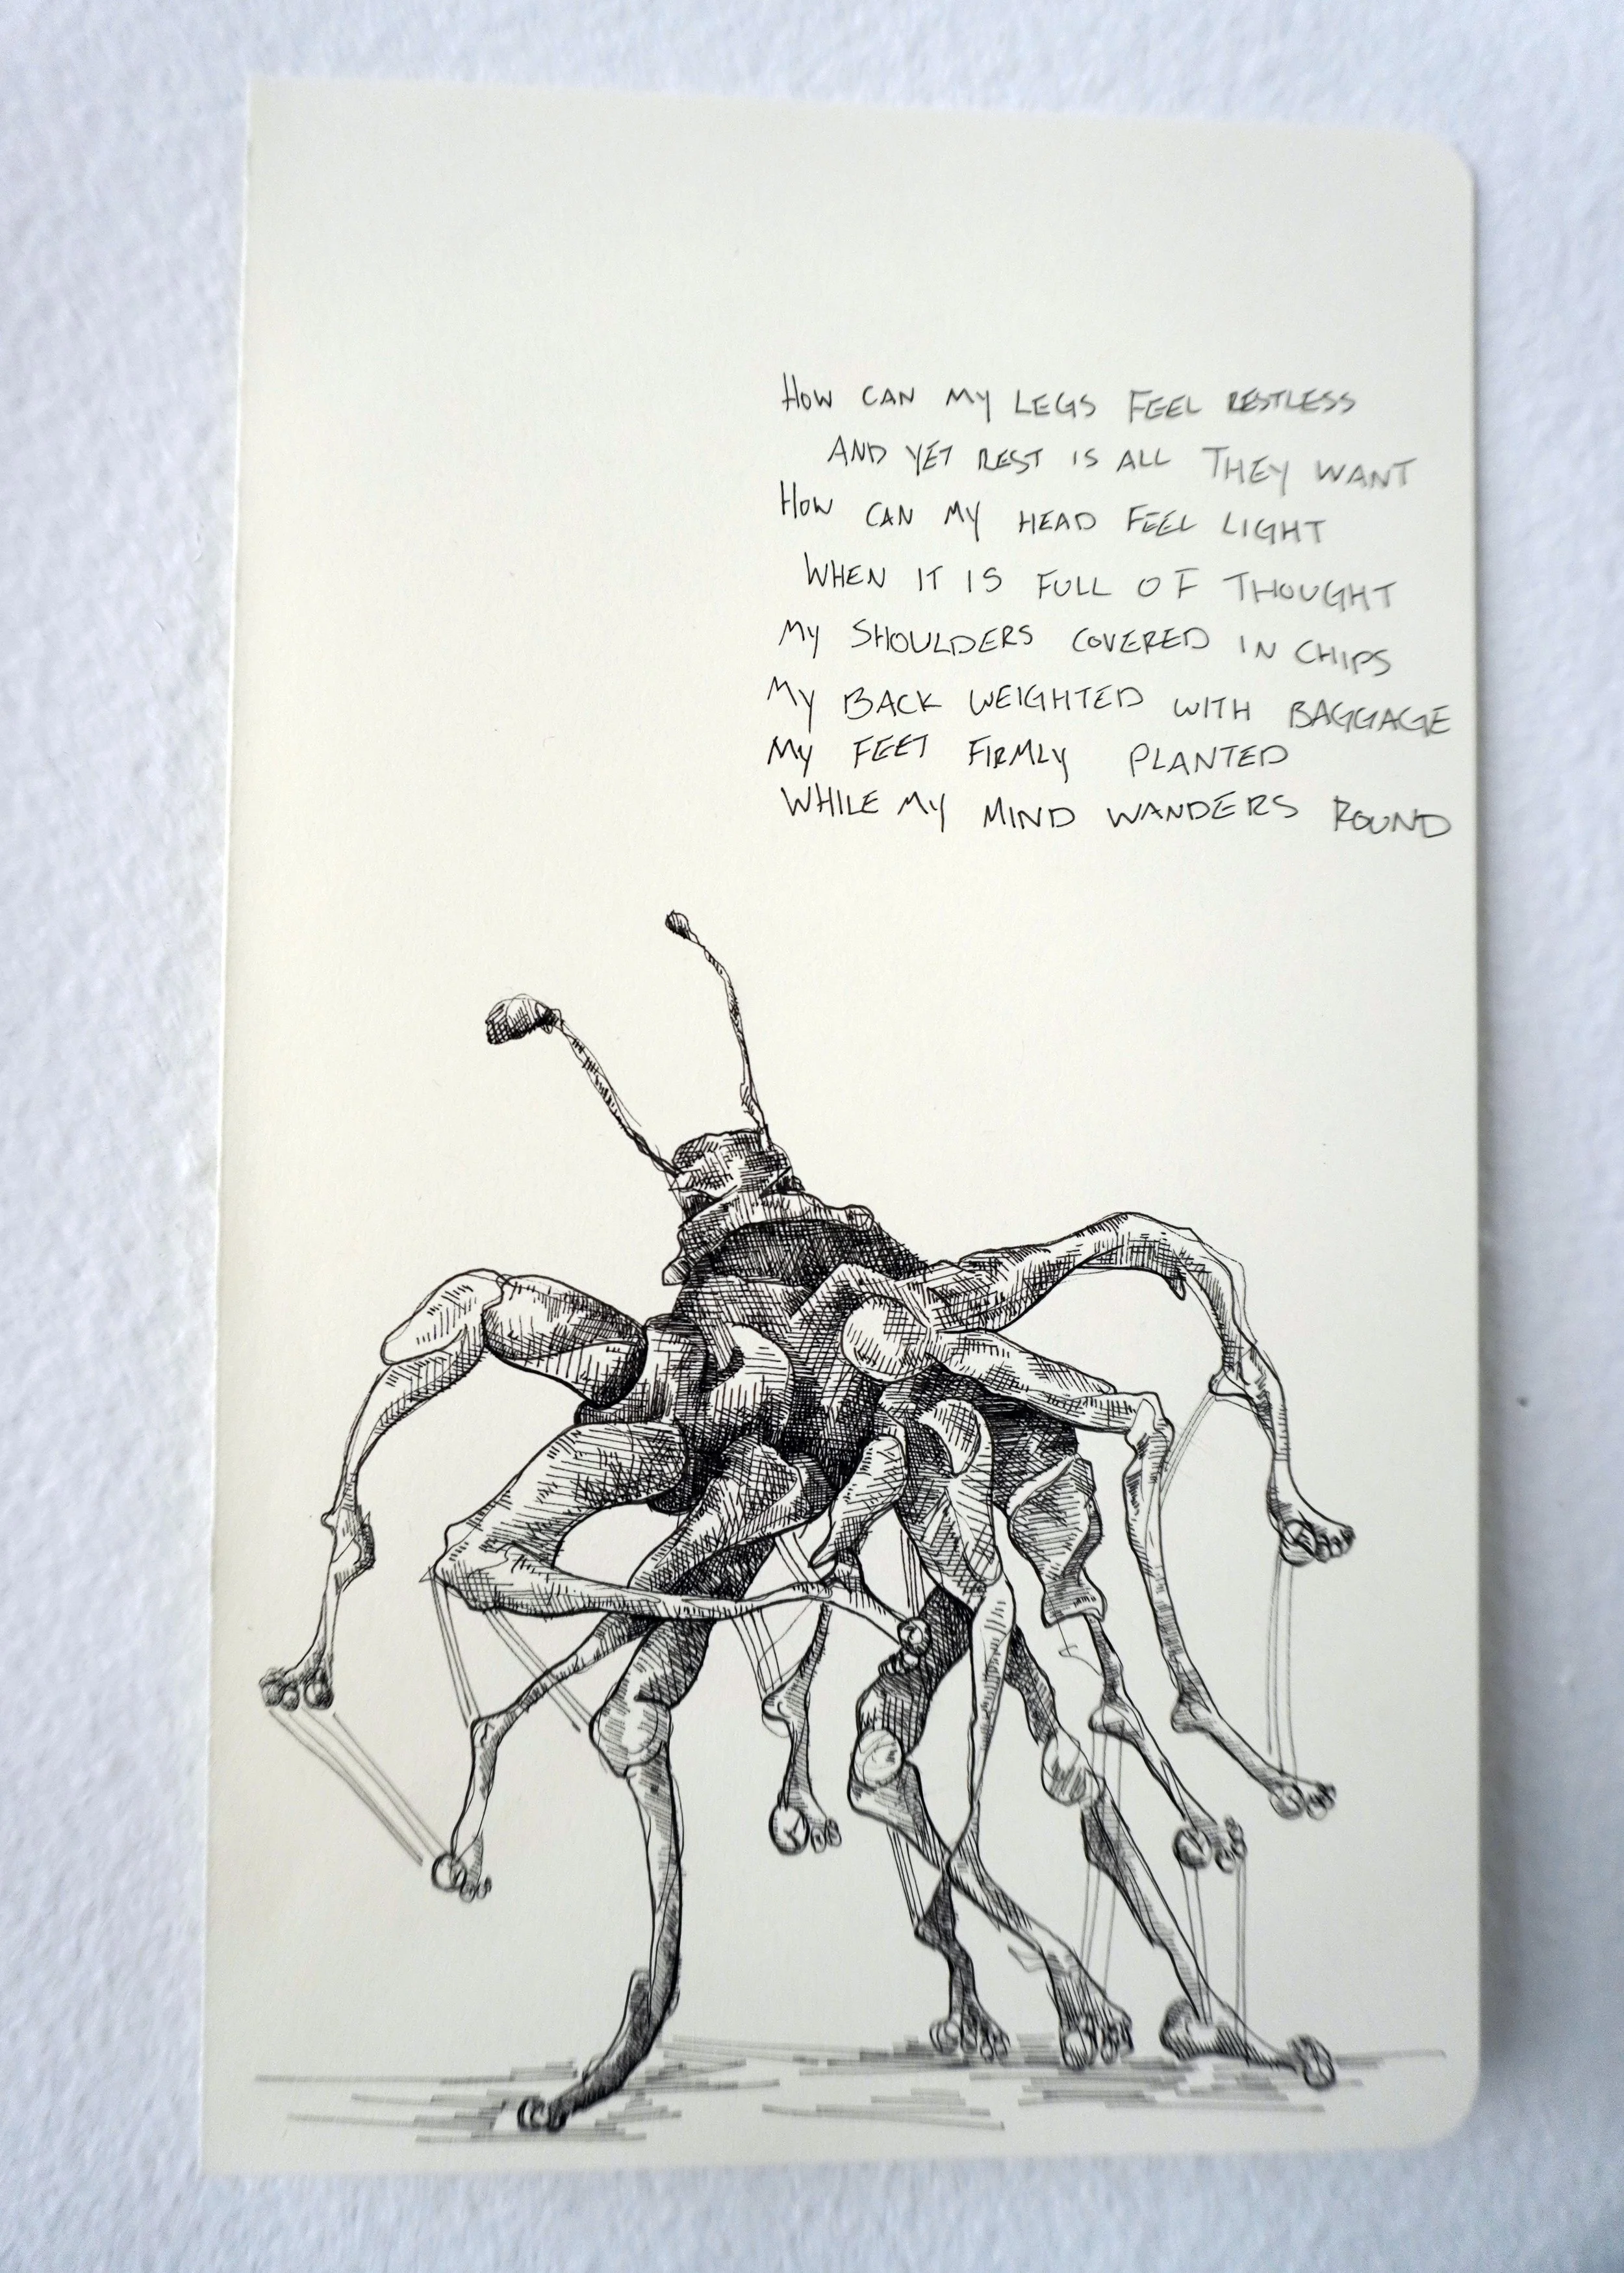 HOW CAN MY LEGS FEEL RESTLESS
AND YET REST IS ALL THEY WANT
HOW CAN MY HEAD FEEL LIGHT
WHEN IT IS FULL OF THOUGHT
MY SHOULDERS COVERED IN CHIPS
MY BACK WEIGHTED WITH BAGGAGE
MY FEET FIRMLY PLANTED
WHILE MY MIND WANDERS ROUND